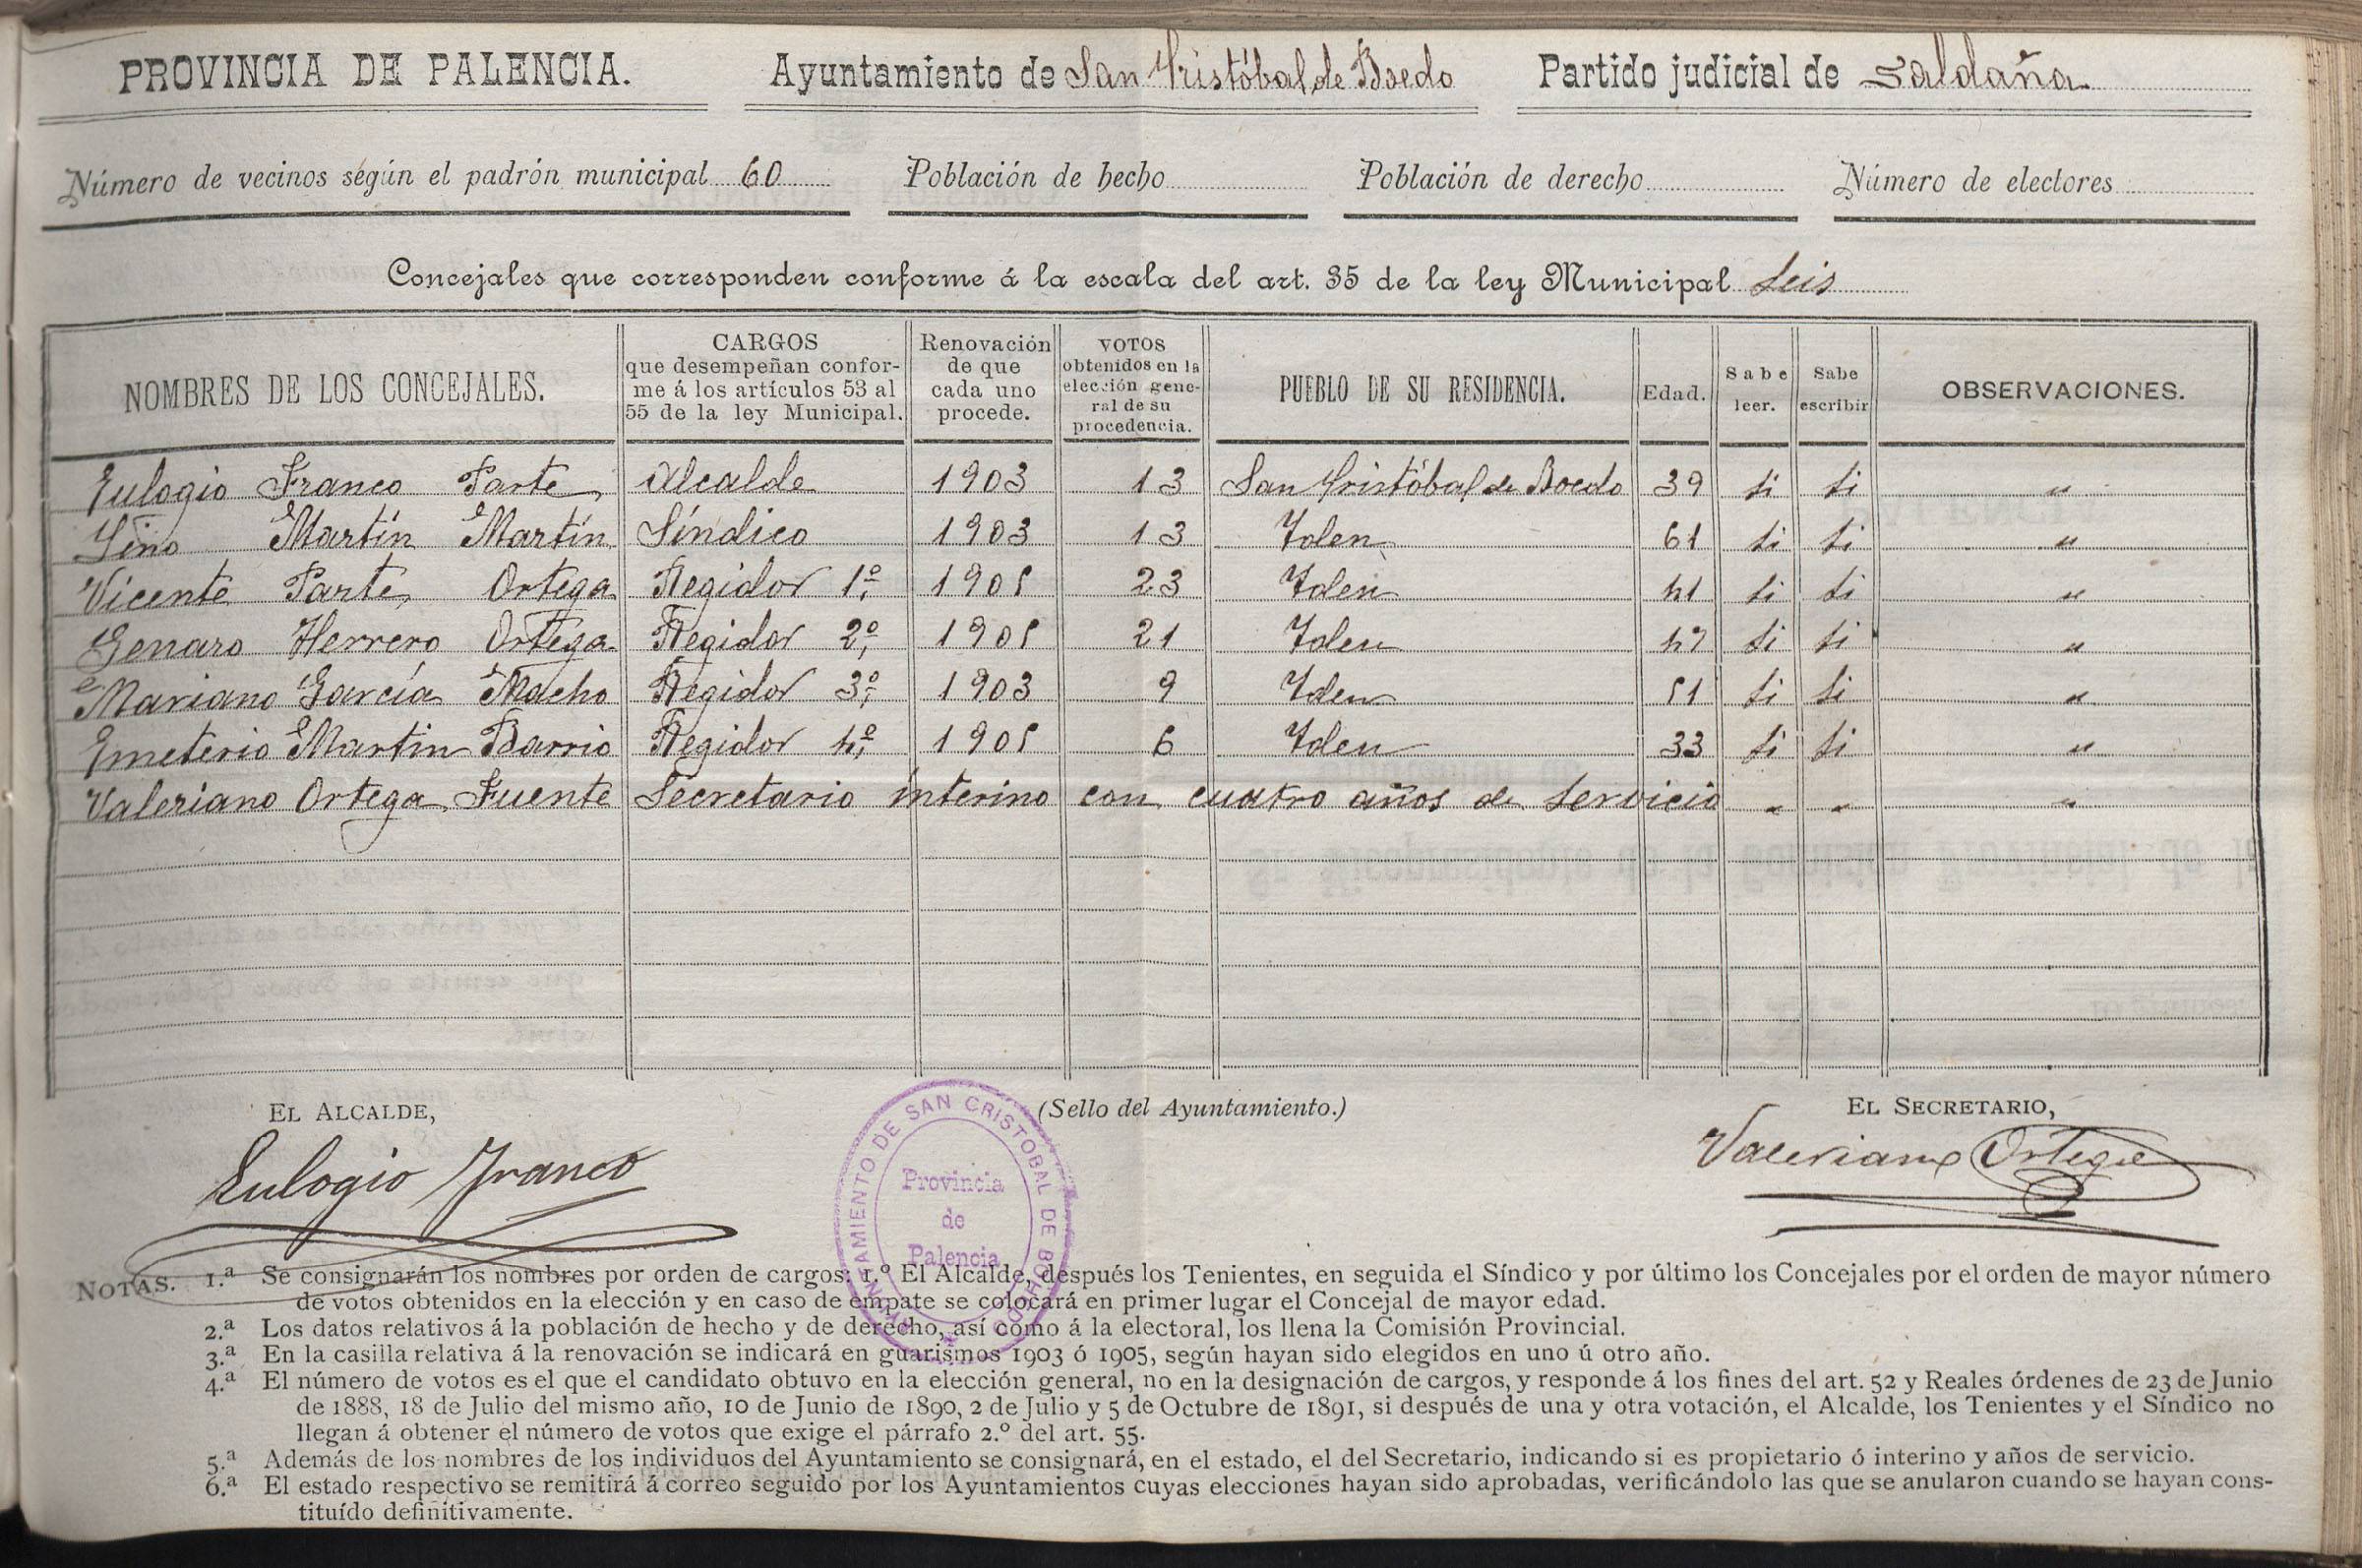 PROVINCIA DE PALENCIA. Ayuntamiento de San Cristóbal de Boedo Partido judicial de Saldaña
Número de vecinos según el padrón municipal 60 Población de hecho Población de derecho Número de electores
Concejales que corresponden conforme á la escala del art. 35 de la ley Municipal Seis
NOMBRES DE LOS CONCEJALES. CARGOS que desempeñan confor- me á los artículos 53 al 55 de la ley Municipal. Renovación de que cada uno procede. VOTOS obtenidos en la elección gene- ral de su procedencia. PUEBLO DE SU RESIDENCIA. Edad. Sabe leer. Sabe escribir OBSERVACIONES.
Eulogio Franco Parte Alcalde 1903 13 San Cristóbal de Boedo 39 si si "
Lino Martín Martín Síndico 1903 13 Iden 61 si si "
Vicente Parte Ortega Regidor 1º 1905 23 Iden 41 si si "
Genaro Herrero Ortega Regidor 2º 1905 21 Iden 47 si si "
Mariano García Macho Regidor 3º 1903 9 Iden 51 si si "
Emeterio Martin Barrio Regidor 4º 1905 6 Iden 33 si si "
Valeriano Ortega Fuente Secretario interino con cuatro años de servicio " " "
EL ALCALDE, (Sello del Ayuntamiento.) EL SECRETARIO,
Eulogio Franco
AYUNTAMIENTO DE SAN CRISTOBAL DE BOEDO
Provincia
de
Palencia
Valeriano Ortega
NOTAS. 1.ª Se consignarán los nombres por orden de cargos: 1.º El Alcalde, después los Tenientes, en seguida el Síndico y por último los Concejales por el orden de mayor número
de votos obtenidos en la elección y en caso de empate se colocará en primer lugar el Concejal de mayor edad.
2.ª Los datos relativos á la población de hecho y de derecho, así como á la electoral, los llena la Comisión Provincial.
3.ª En la casilla relativa á la renovación se indicará en guarismos 1903 ó 1905, según hayan sido elegidos en uno ú otro año.
4.ª El número de votos es el que el candidato obtuvo en la elección general, no en la designación de cargos, y responde á los fines del art. 52 y Reales órdenes de 23 de Junio
de 1888, 18 de Julio del mismo año, 10 de Junio de 1890, 2 de Julio y 5 de Octubre de 1891, si después de una y otra votación, el Alcalde, los Tenientes y el Síndico no
llegan á obtener el número de votos que exige el párrafo 2.º del art. 55.
5.ª Además de los nombres de los individuos del Ayuntamiento se consignará, en el estado, el del Secretario, indicando si es propietario ó interino y años de servicio.
6.ª El estado respectivo se remitirá á correo seguido por los Ayuntamientos cuyas elecciones hayan sido aprobadas, verificándolo las que se anularon cuando se hayan cons-
tituído definitivamente.